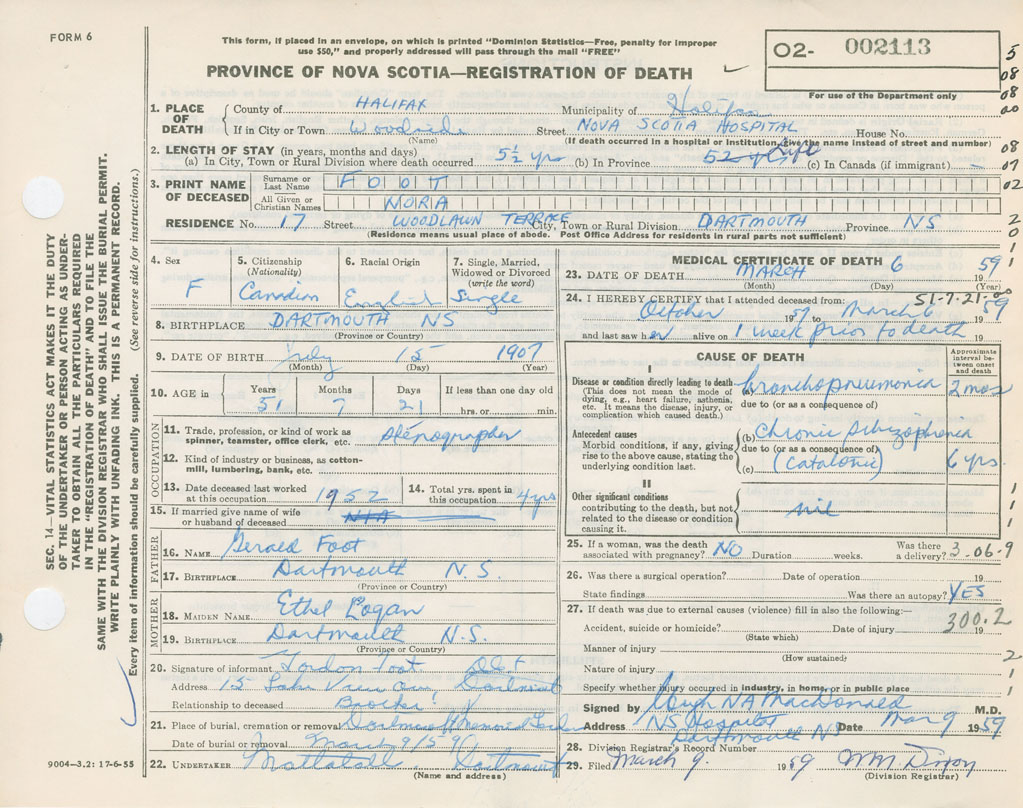 FORM 6
This form, if placed in an envelope, on which is printed "Dominion Statistics—Free, penalty for improper
use $50," and properly addressed will pass through the mail "FREE"
PROVINCE OF NOVA SCOTIA—REGISTRATION OF DEATH
02- 002113
For use of the Department only
5
08
08
00
08
07
02
2
0
1
1
SEC. 14—VITAL STATISTICS ACT MAKES IT THE DUTY
OF THE UNDERTAKER OR PERSON ACTING AS UNDER-
TAKER TO OBTAIN ALL THE PARTICULARS REQUIRED
IN THE "REGISTRATION OF DEATH" AND TO FILE THE
SAME WITH THE DIVISION REGISTRAR WHO SHALL ISSUE THE BURIAL PERMIT.
WRITE PLAINLY WITH UNFADING INK. THIS IS A PERMANENT RECORD.
Every item of information should be carefully supplied. (See reverse side for instructions.)
1. PLACE OF DEATH County of HALIFAX Municipality of Halifax
If in City or Town Woodside Street NOVA SCOTIA HOSPITAL House No.
(Name) (If death occurred in a hospital or institution, give the name instead of street and number)
2. LENGTH OF STAY (in years, months and days)
(a) In City, Town or Rural Division where death occurred 5½ yr (b) In Province 52 y Life (c) In Canada (if immigrant) -
3. PRINT NAME OF DECEASED Surname or Last Name FOOT
All Given or Christian Names MORA
RESIDENCE No. 17 Street WOODLAWN TERRACE City, Town or Rural Division DARTMOUTH Province NS
(Residence means usual place of abode. Post Office Address for residents in rural parts not sufficient)
4. Sex F
5. Citizenship (Nationality) Canadian
6. Racial Origin English
7. Single, Married, Widowed or Divorced (write the word) Single
8. BIRTHPLACE DARTMOUTH NS
(Province or Country)
9. DATE OF BIRTH July 15 1907
(Month) (Day) (Year)
10. AGE in Years 51 Months 7 Days 21 If less than one day old hrs. or min.
OCCUPATION
11. Trade, profession, or kind of work as spinner, teamster, office clerk, etc. Stenographer
12. Kind of industry or business, as cotton-mill, lumbering, bank, etc.
13. Date deceased last worked at this occupation 1952
14. Total yrs. spent in this occupation 4 yrs
15. If married give name of wife or husband of deceased N/A
FATHER
16. NAME Gerald Foot
17. BIRTHPLACE Dartmouth N.S.
(Province or Country)
MOTHER
18. MAIDEN NAME Ethel Logan
19. BIRTHPLACE Dartmouth N.S.
(Province or Country)
20. Signature of informant Gordon Foot
Address 15 Lake View Dartmouth
Relationship to deceased Brother
21. Place of burial, cremation or removal Dartmouth Memorial
Date of burial or removal March 9/59
22. UNDERTAKER Mattatall Dartmouth
(Name and address)
9004—3.2: 17-6-55
MEDICAL CERTIFICATE OF DEATH
23. DATE OF DEATH MARCH 6 1959
(Month) (Day) (Year)
24. I HEREBY CERTIFY that I attended deceased from: 51-7-21-
October 1957 to March 6 1959
and last saw her alive on 1 week prior to death 19
CAUSE OF DEATH
Approximate interval between onset and death
I
Disease or condition directly leading to death
(This does not mean the mode of dying, e.g., heart failure, asthenia, etc. It means the disease, injury, or complication which caused death.)
(a) bronchopneumonia 2 mos
due to (or as a consequence of)
Antecedent causes
Morbid conditions, if any, giving rise to the above cause, stating the underlying condition last.
(b) Chronic schizophrenia
due to (or as a consequence of)
(c) (Catatonic) 6 yrs.
II
Other significant conditions
contributing to the death, but not related to the disease or condition causing it.
nil
25. If a woman, was the death associated with pregnancy? NO Duration weeks. Was there a delivery? 3-06-9
26. Was there a surgical operation? Date of operation 19
State findings Was there an autopsy? YES
27. If death was due to external causes (violence) fill in also the following:—
300.2
Accident, suicide or homicide? Date of injury 19
(State which)
Manner of injury
(How sustained)
Nature of injury
Specify whether injury occurred in industry, in home, or in public place
1
1
1
1
2
1
1
Signed by Hugh NA MacDonald M.D.
Address NS Hospital Dartmouth NS Date Mar 9 1959
28. Division Registrar's Record Number
29. Filed March 9. 1959 WM Dixon
(Division Registrar)